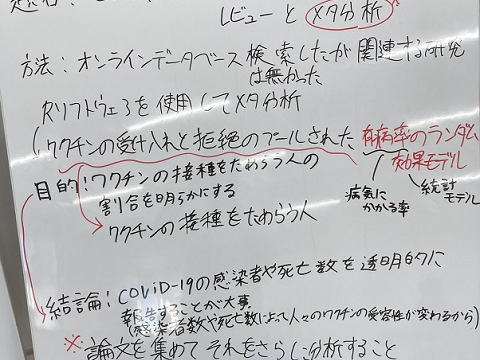 レビューと メタ分析
方法：オンラインデータベース検索したが関連する研究
は無かった
Rソフトウェアを使用してメタ分析
(ワクチンの受け入れと拒絶のプールされた 有病率のランダム
効果モデル
病気に
かかる率
統計
モデル
目的：ワクチンの接種をためらう人の
割合を明らかにする
ワクチンの接種をためらう人
結論：COVID-19の感染者や死亡数を透明的に
報告することが大事
(感染者数や死亡数によって人々のワクチンの受容性が変わるから)
※論文を集めてそれをさらに分析すること